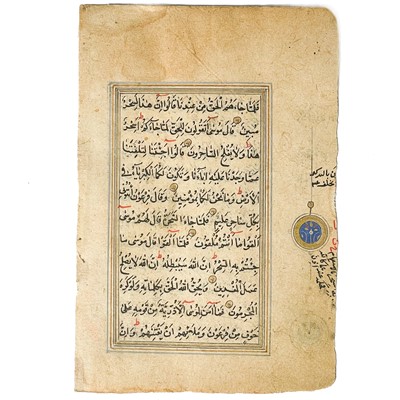 فَلَمَّا جَاءَهُمُ الْحَقُّ مِنْ عِنْدِنَا قَالُوا اِنَّ هٰذَا لَسِحْرٌ
مُبِينٌ قَالَ مُوسٰى اَتَقُولُونَ لِلْحَقِّ لَمَّا جَاءَكُمْ اَسِحْرٌ
هٰذَا وَلَا يُفْلِحُ السَّاحِرُونَ قَالُوا اَجِئْتَنَا لِتَلْفِتَنَا
عَمَّا وَجَدْنَا عَلَيْهِ اٰبَاءَنَا وَتَكُونَ لَكُمَا الْكِبْرِيَاءُ فِي
الْاَرْضِ وَمَا نَحْنُ لَكُمَا بِمُؤْمِنِينَ وَقَالَ فِرْعَوْنُ ائْتُونِي
بِكُلِّ سَاحِرٍ عَلِيمٍ فَلَمَّا جَاءَ السَّحَرَةُ قَالَ لَهُمْ مُوسٰى
اَلْقُوا مَا اَنْتُمْ مُلْقُونَ فَلَمَّا اَلْقَوْا قَالَ مُوسٰى مَا
جِئْتُمْ بِهِ السِّحْرُ اِنَّ اللّٰهَ سَيُبْطِلُهُ اِنَّ اللّٰهَ لَا يُصْلِحُ
عَمَلَ الْمُفْسِدِينَ وَيُحِقُّ اللّٰهُ الْحَقَّ بِكَلِمَاتِهِ وَلَوْ كَرِهَ
الْمُجْرِمُونَ فَمَا اٰمَنَ لِمُوسٰى اِلَّا ذُرِّيَّةٌ مِنْ قَوْمِهِ عَلٰى
خَوْفٍ مِنْ فِرْعَوْنَ وَمَلَئِهِمْ اَنْ يَفْتِنَهُمْ وَاِنَّ